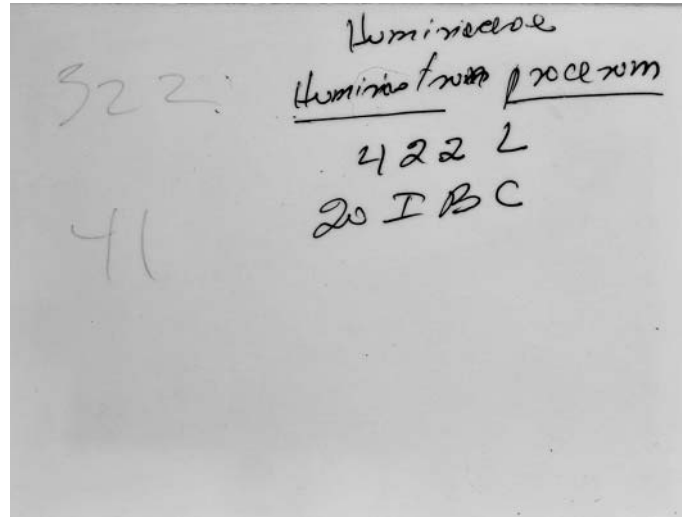 Humiriaceae
522
Humiriastrum procerum
422 L
20 I B C
41